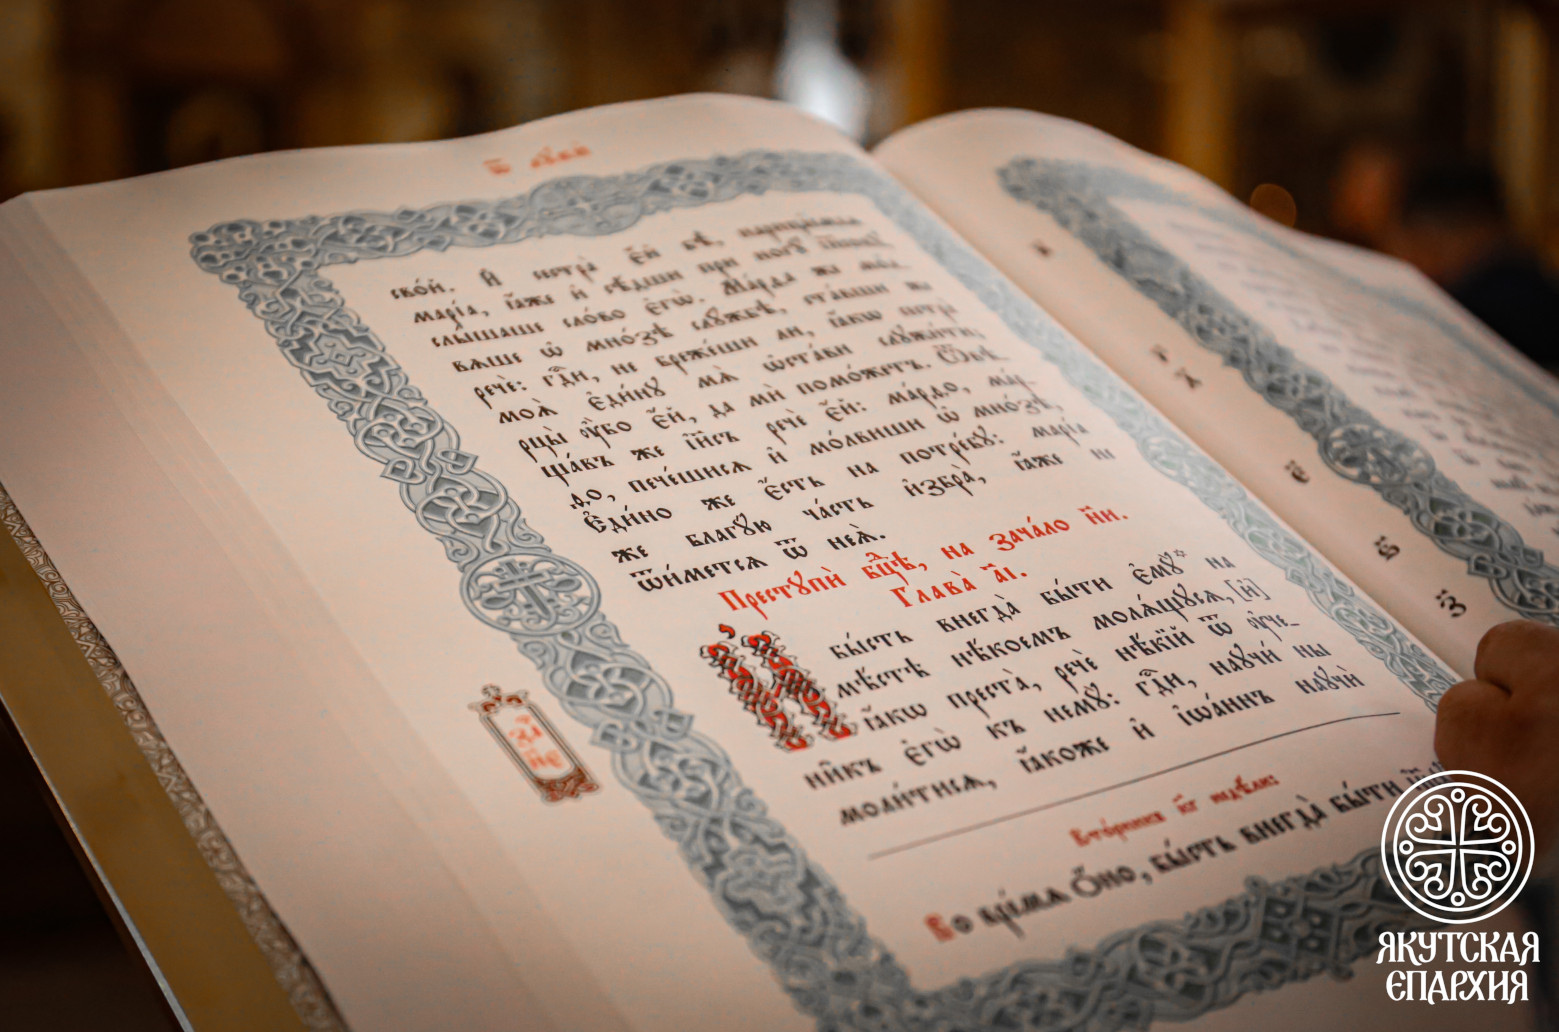 свой. И҆ сестра̀ є҆́й бѣ̀, нарица́емаѧ
марі́а, ꙗ҆́же и҆ сѣ́дши при ногꙋ̀ і҆и҃сѡвꙋ,
слы́шаше сло́во є҆гѡ̀. Ма́рѳа же мо́л-
вѧше ѡ҆ мно́зѣ слꙋ́жбѣ, ста́вши же
речѐ: гдⷭ҇и, не бреже́ши ли, ꙗ҆́кѡ сестра̀
моѧ̀ є҆ди́нꙋ мѧ̀ ѡ҆ста́ви слꙋжи́ти;
рцы̀ ᲂу҆̀бо є҆́й, да мѝ помо́жетъ. Ѿвѣ-
ща́въ же і҆и҃съ речѐ є҆́й: ма́рѳо, ма́р-
ѳо, пече́шисѧ и҆ мо́лвиши ѡ҆ мно́зѣ,
є҆ди́но же є҆́сть на потре́бꙋ: марі́а
же благꙋ́ю ча́сть и҆збра̀, ꙗ҆́же не
ѿи́метсѧ ѿ неѧ̀.
Престꙋпѝ бц҃ѣ, на зача́ло н҃и.
Глава̀ а҃і.
И҆ бы́сть внегда̀ бы́ти є҆мꙋ̀* на
мѣ́стѣ нѣ́коемъ молѧ́щꙋсѧ, [и҆]
ꙗ҆́кѡ преста̀, речѐ нѣ́кїй ѿ ᲂу҆че-
ни̑къ є҆гѡ̀ къ немꙋ̀: гдⷭ҇и, наꙋчѝ ны̀
моли́тисѧ, ꙗ҆́коже и҆ і҆ѡа́ннъ наꙋчѝ
Во вре́мѧ ѻ҆́но, бы́сть внегда̀ бы́ти
ЯКУТСКАЯ
ЄПАРХИЯ